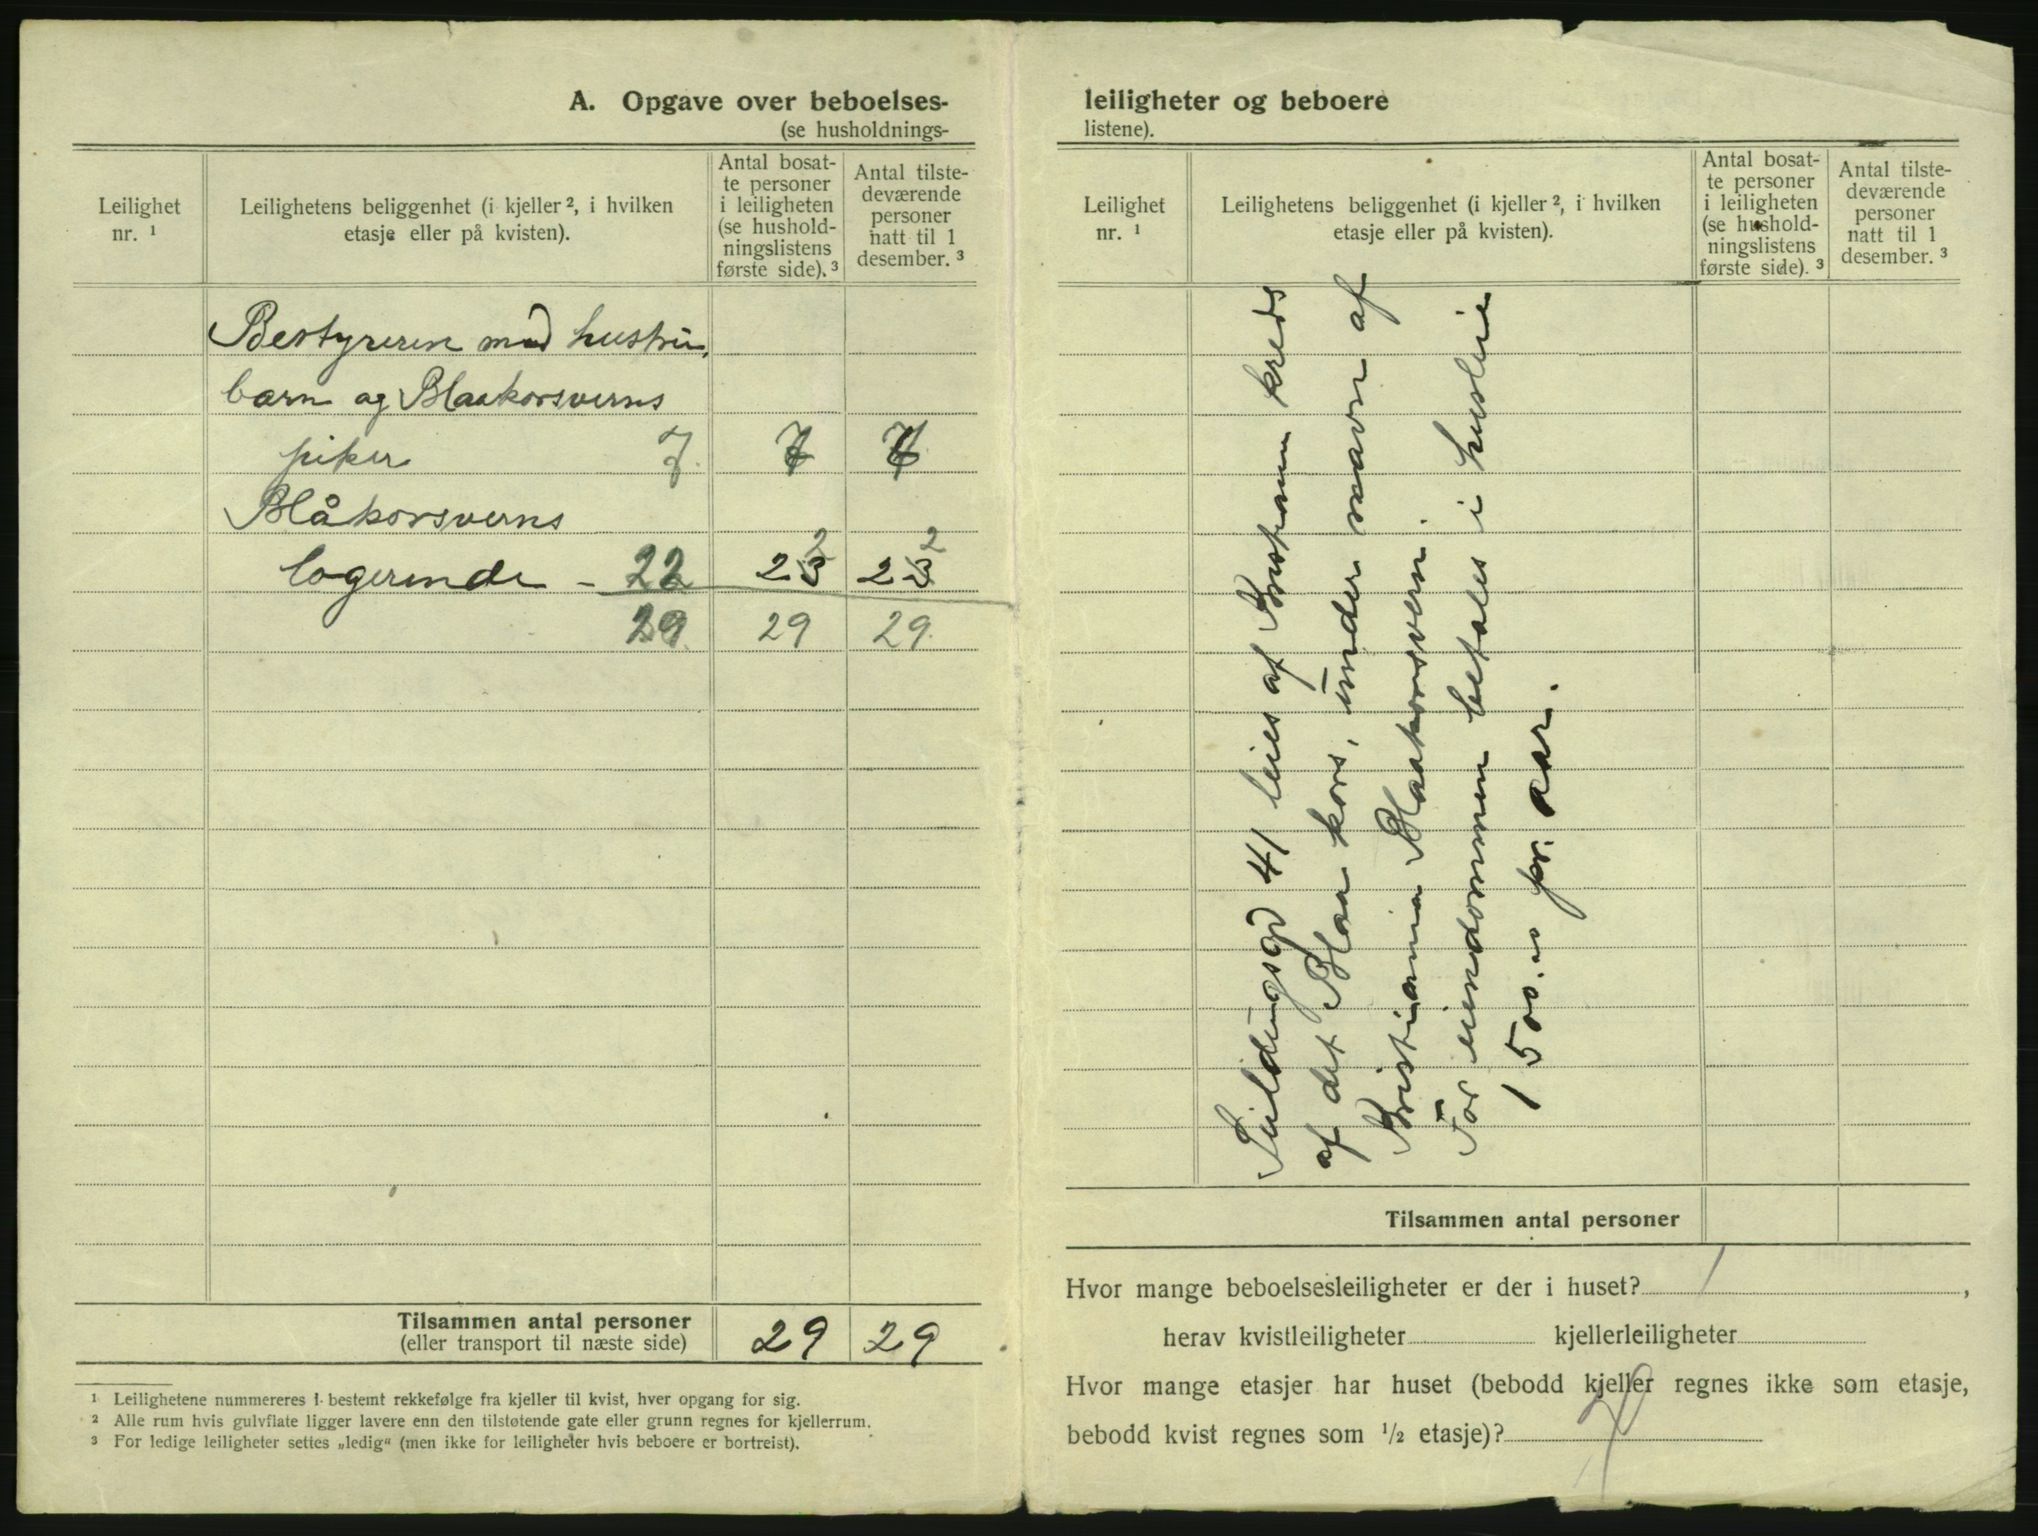 A. Opgave over beboelses-
(se husholdnings-
Leilighet
nr. ¹
Leilighetens beliggenhet (i kjeller ², i hvilken
etasje eller på kvisten).
Antal bosat-
te personer
i leiligheten
(se hushold-
ningslistens
første side). ³
Antal tilste-
deværende
personer
natt til 1
desember. ³
Bestyreren med hustru,
barn og Blaakorsverns
piker 7. 7 7
Blåkorsverns
2 2
logerende - 22 23 23
29 29 29.
Tilsammen antal personer
(eller transport til næste side)
29 29
¹ Leilighetene nummereres i bestemt rekkefølge fra kjeller til kvist, hver opgang for sig.
² Alle rum hvis gulvflate ligger lavere enn den tilstøtende gate eller grunn regnes for kjellerrum.
³ For ledige leiligheter settes „ledig“ (men ikke for leiligheter hvis beboere er bortreist).
leiligheter og beboere
listene).
Leilighet
nr. ¹
Leilighetens beliggenhet (i kjeller ², i hvilken
etasje eller på kvisten).
Antal bosat-
te personer
i leiligheten
(se hushold-
ningslistens
første side). ³
Antal tilste-
deværende
personer
natt til 1
desember. ³
Seildugsgd 41 leies af Kristiania kreds
af det Blaa kors, under navn af
Kristiania Blaakorsvern.
For eiendommen betales i husleie
1500.00 pr. aar.
Tilsammen antal personer
Hvor mange beboelsesleiligheter er der i huset? 1,
herav kvistleiligheter kjellerleiligheter
Hvor mange etasjer har huset (bebodd kjeller regnes ikke som etasje,
bebodd kvist regnes som ¹/₂ etasje)?